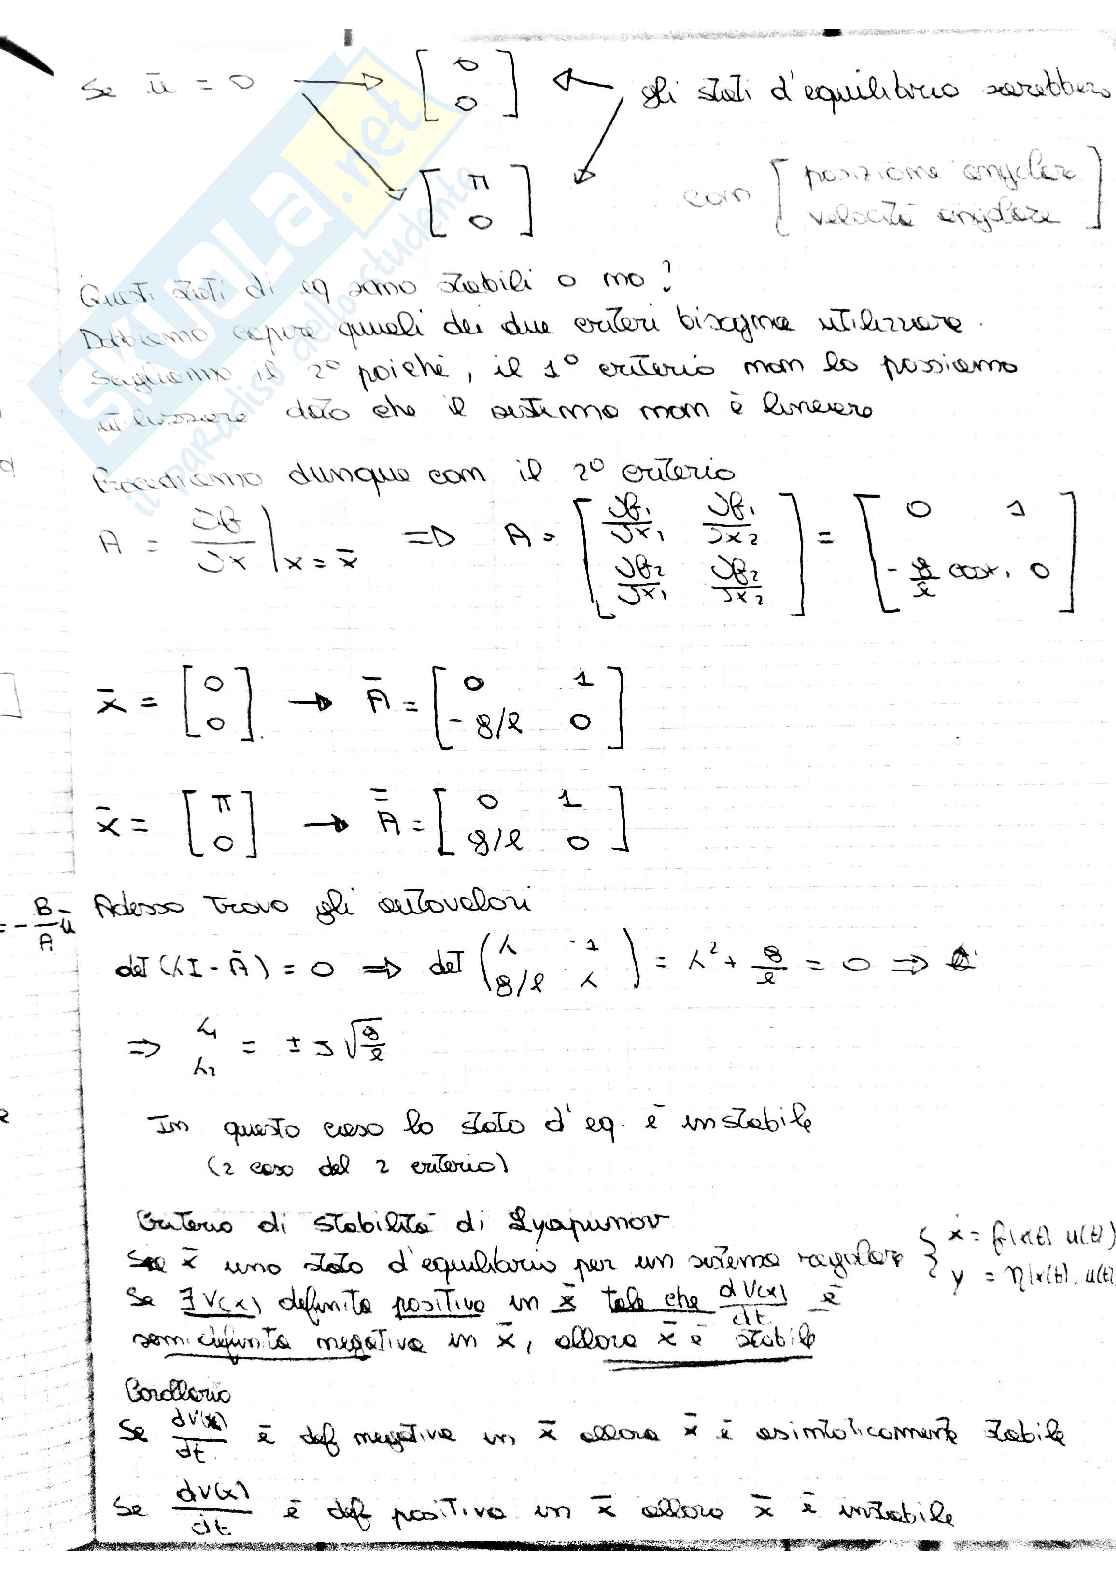 Se ū = 0 → [0 0] ← gli stati d'equilibrio sarebbero
[π 0] com [posizione angolare velocità angolare]
Questi stati di eq sono stabili o no?
Dobbiamo capire quali dei due criteri bisogna utilizzare.
Scegliamo il 2° poiché, il 1° criterio non lo possiamo
utilizzare dato che il sistema non è lineare
Procediamo dunque con il 2° criterio
A = ∂f/∂x |x = x̄ ⇒ A = [∂f₁/∂x₁ ∂f₁/∂x₂ ∂f₂/∂x₁ ∂f₂/∂x₂] = [0 1 -g/l cosx₁ 0]
x̄ = [0 0] → Ā = [0 1 -g/l 0]
x̄ = [π 0] → A̿ = [0 1 g/l 0]
= -B/A ū
Adesso trovo gli autovalori
det(λI - Ā) = 0 ⇒ det(λ -1 g/l λ) = λ² + g/l = 0 ⇒
⇒ λ₁ λ₂ = ± J √g/l
In questo caso lo stato d'eq. è instabile
(2 caso del 2 criterio)
Criterio di stabilità di Lyapunov
Sia x̄ uno stato d'equilibrio per un sistema regolare { ẋ = f(x(t) u(t)) y = η(x(t), u(t))
Se ∃ V(x) definita positiva in x̄ tale che dV(x)/dt è
semidefinita negativa in x̄, allora x̄ è stabile
Corollario
Se dV(x)/dt è def negativa in x̄ allora x̄ è asintoticamente stabile
Se dV(x)/dt è def positiva in x̄ allora x̄ è instabile
SKUOLA.net
il paradiso dello studente